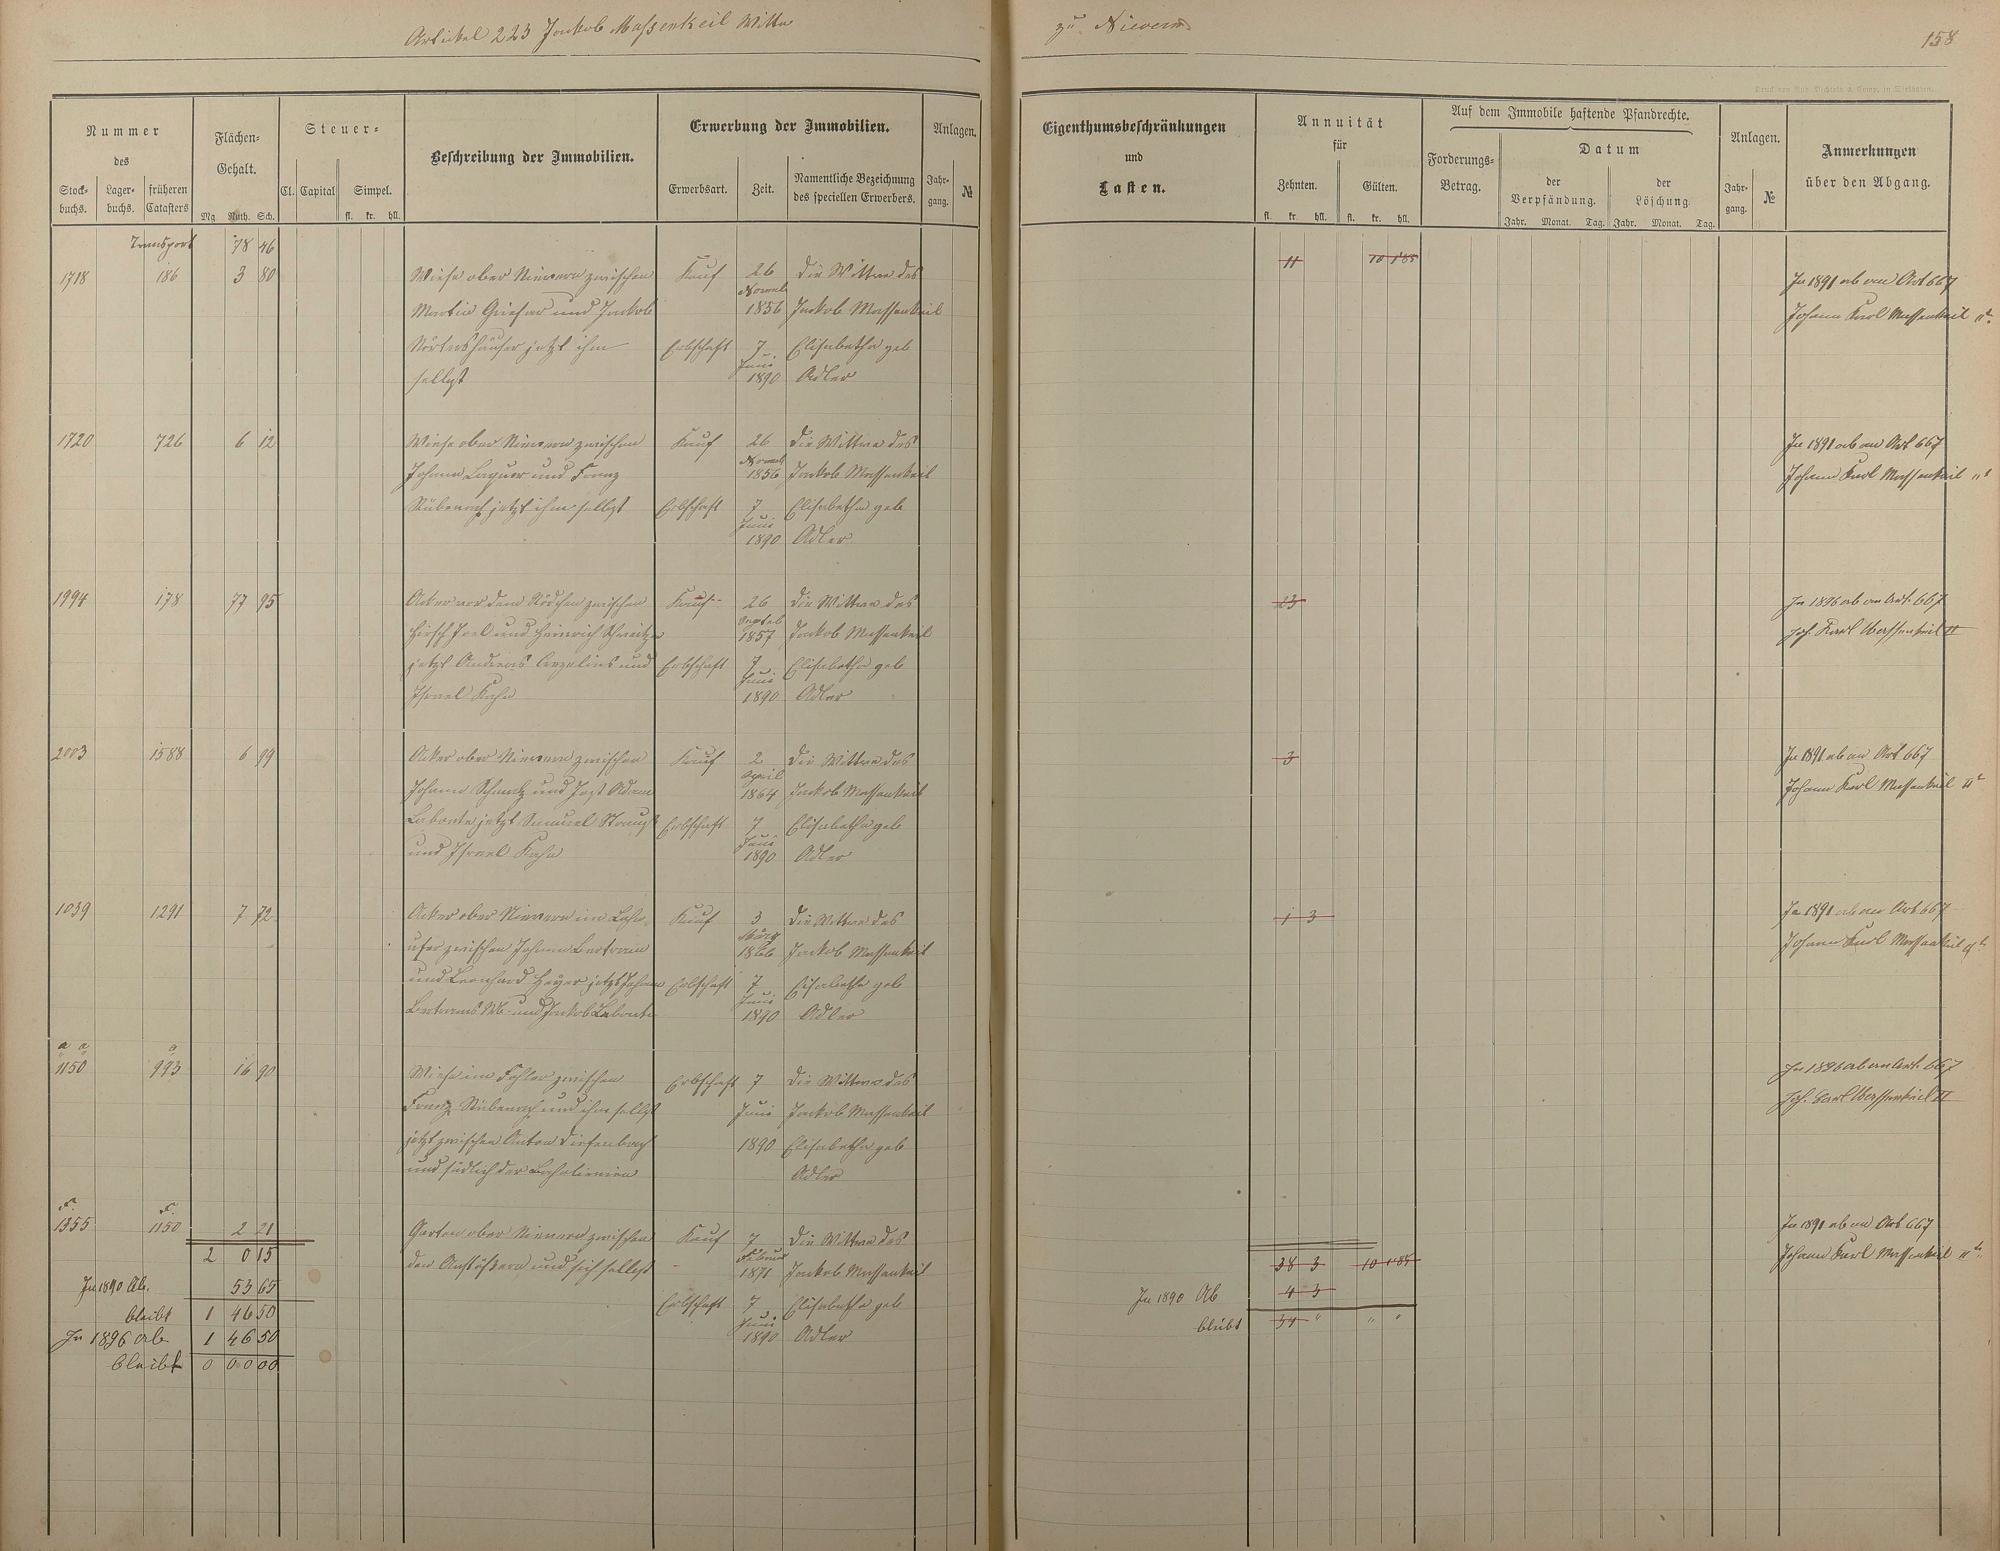 Artickel 223 Jakob Massenkeil Wittw
zu Nievern
158
Nummer
des
Stock-
buchs.
Lager-
buchs.
früheren
Catasters
Flächen-
Gehalt.
Mg Ruth. Sch.
Steuer-
Cl. Capital Simpel.
fl. kr. hll.
Beschreibung der Immobilien.
Erwerbung der Immobilien.
Erwerbsart. Zeit.
Namentliche Bezeichnung
des speciellen Erwerbers.
Anlagen.
Jahr-
gang.
№
Eigenthumsbeschränkungen
und
Lasten.
Annuität
für
Zehnten. Gülten.
fl. kr. hll. fl. kr. hll.
Auf dem Immobile haftende Pfandrechte.
Forderungs-
Betrag.
Datum
der
Verpfändung.
der
Löschung
Jahr. Monat. Tag. Jahr. Monat. Tag.
Anlagen.
Jahr-
gang.
№
Anmerkungen
über den Abgang.
Transport 78 46
11
1718 186 3 80 Wiese ober Nievern zwischen Kauf 26 die Wittwe des
Martin und Jakob 1856 Jakob Massenkeil
jetzt ihm Erbschaft 7 Elisabetha geb
selbst Juni 1890 Adler
In 1891 ab an Art 667
Johann Karl Massenkeil
1720 726 6 12 Wiese ober Nievern zwischen Kauf 26 die Wittwe des
Johann und Franz 1856 Jakob Massenkeil
Rübenach jetzt ihm selbst Erbschaft 7 Elisabetha geb
Juni 1890 Adler
In 1891 ab an Art 667
Johann Karl Massenkeil
1994 178 77 95 Acker vor dem zwischen Kauf 26 die Wittwe des 23
und Heinrich 1857 Jakob Massenkeil
jetzt Andreas und Erbschaft 7 Elisabetha geb
Israel Kahn Juni 1890 Adler
In 1896 ab an Art. 667
Joh. Karl Massenkeil II
2003 1588 6 99 Acker ober Nievern zwischen Kauf 2 die Wittwe des 3
Johann und Adam April 1864 Jakob Massenkeil
Labonte jetzt Samuel und Erbschaft 7 Elisabetha geb
und Israel Kahn Juni 1890 Adler
In 1891 ab an Art 667
Johann Karl Massenkeil II
1039 1291 7 72 Acker ober Nievern im Lahn- Kauf 3 die Wittwe des 1 3
ufer zwischen Johann Bertram März 1866 Jakob Massenkeil
und Leonhard Heyer jetzt Johann Erbschaft 7 Elisabetha geb
Bertrams und Jakob Labonte Juni 1890 Adler
In 1891 ab an Art 667
Johann Karl Massenkeil
a a a
1150 993 16 90 Wiese im zwischen Erbschaft 7 die Wittwe des
Franz Rübenach und ihm selbst Juni Jakob Massenkeil
jetzt zwischen Anton Diefenbach 1890 Elisabetha geb
und südlich der Adler
In 1896 ab an Art. 667
Joh. Karl Massenkeil II
1355 1150 2 21 Garten ober Nievern zwischen Kauf 7 die Wittwe des
den Anstößern und sich selbst Februar 1871 Jakob Massenkeil
Erbschaft 7 Elisabetha geb
Juni 1890 Adler
In 1891 ab an Art 667
Johann Karl Massenkeil
2 0 15
In 1890 Ab. 53 65
bleibt 1 46 50
In 1896 ab 1 46 50
bleibt 0 00 00
38 3
In 1890 Ab 4 3
bleibt 34 "